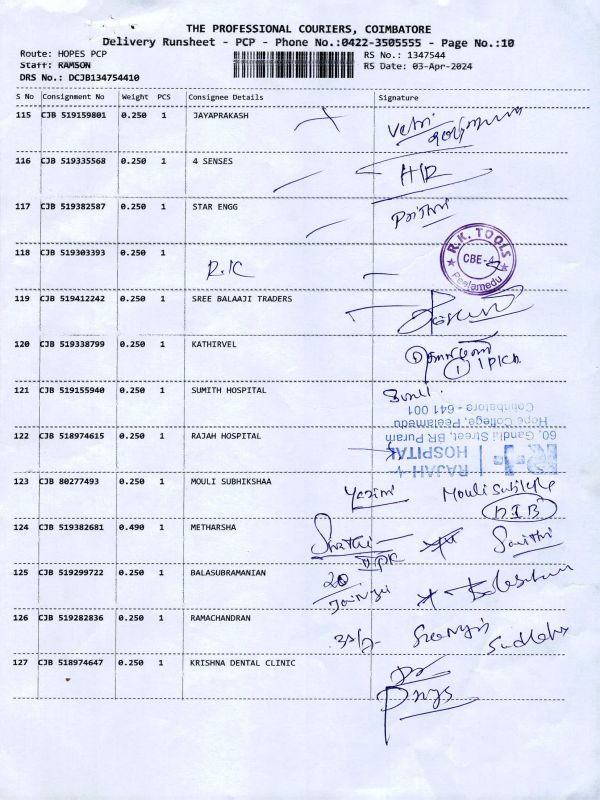 THE PROFESSIONAL COURIERS, COIMBATORE
Delivery Runsheet - PCP - Phone No.:0422-3505555 - Page No.:10
Route: HOPES PCP
RS No.: 1347544
Staff: RAMSON
RS Date: 03-Apr-2024
DRS No.: DCJB134754410
S No Consignment No Weight PCS Consignee Details Signature
115 CJB 519159801 0.250 1 JAYAPRAKASH
Vetri
116 CJB 519335568 0.250 1 4 SENSES
117 CJB 519382587 0.250 1 STAR ENGG
Prithvi
118 CJB 519303393 0.250 1 R.K
R.K. TOOLS
CBE-4
Peelamedu
119 CJB 519412242 0.250 1 SREE BALAAJI TRADERS
120 CJB 519338799 0.250 1 KATHIRVEL
121 CJB 519155940 0.250 1 SUMITH HOSPITAL
122 CJB 518974615 0.250 1 RAJAH HOSPITAL
RAJAH
HOSPITAL
60, Gandhi Street, BR Puram
Hope College, Peelamedu
Coimbatore - 641 001
123 CJB 80277493 0.250 1 MOULI SUBHIKSHAA
124 CJB 519382681 0.490 1 METHARSHA
125 CJB 519299722 0.250 1 BALASUBRAMANIAN
20
126 CJB 519282836 0.250 1 RAMACHANDRAN
127 CJB 518974647 0.250 1 KRISHNA DENTAL CLINIC